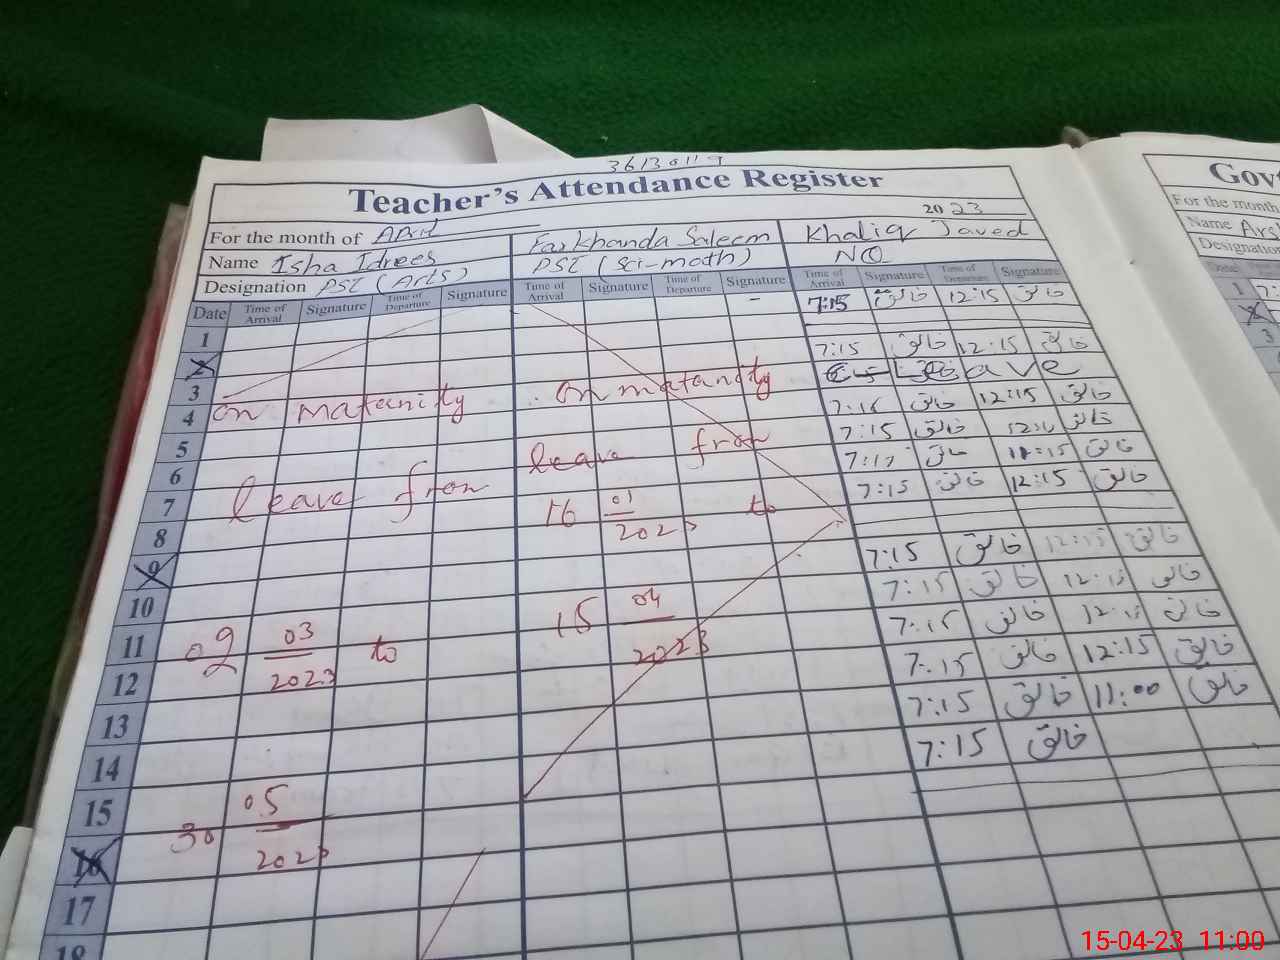 36130119
Teacher's Attendance Register
2023
For the month of April
Name Isha Idrees Farkhanda Saleem Khaliq Javed
Designation PST (Arts) PST (Sci-math) NQ
Date Time of Arrival Signature Time of Departure Signature Time of Arrival Signature Time of Departure Signature Time of Arrival Signature Time of Departure Signature
1 7:15 خالق 12:15 خالق
2
3 7:15 خالق 12:15 خالق
4 Leave
5 7:15 خالق 12:15 خالق
6 7:15 خالق خالق
7 خالق 11:15 خالق
8 7:15 خالق 12:15 خالق
9
10 7:15 خالق 12:15 خالق
11 7:15 خالق 12:15 خالق
12 7:15 خالق 12:15 خالق
13 7:15 خالق 12:15 خالق
14 7:15 خالق 11:00 خالق
15 7:15 خالق
16
17
18
on matanity
leave from
02 03
2023 to
30 05
2023
on matandity
leave from
16 01
2023 to
15 04
2023
Govt
For the month
Name Ars
Designation
Date
1 7:
2
3
15-04-23 11:00